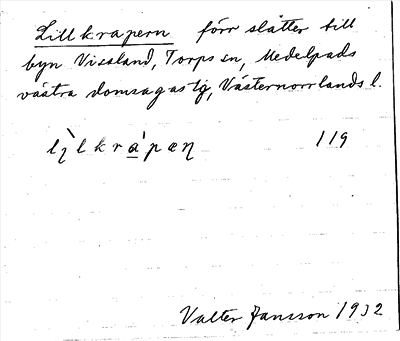 Lillkrapern förr slåtter till
byn Vissland, Torps sn, Medelpads
västra domsagas tg, Västernorrlands l.
119
Valter Jansson 1932